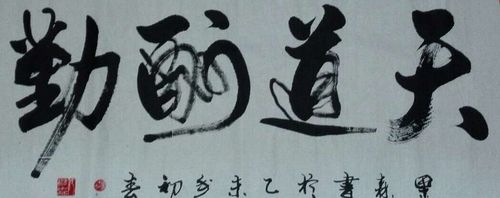 天道酬勤
森書於乙未年初春